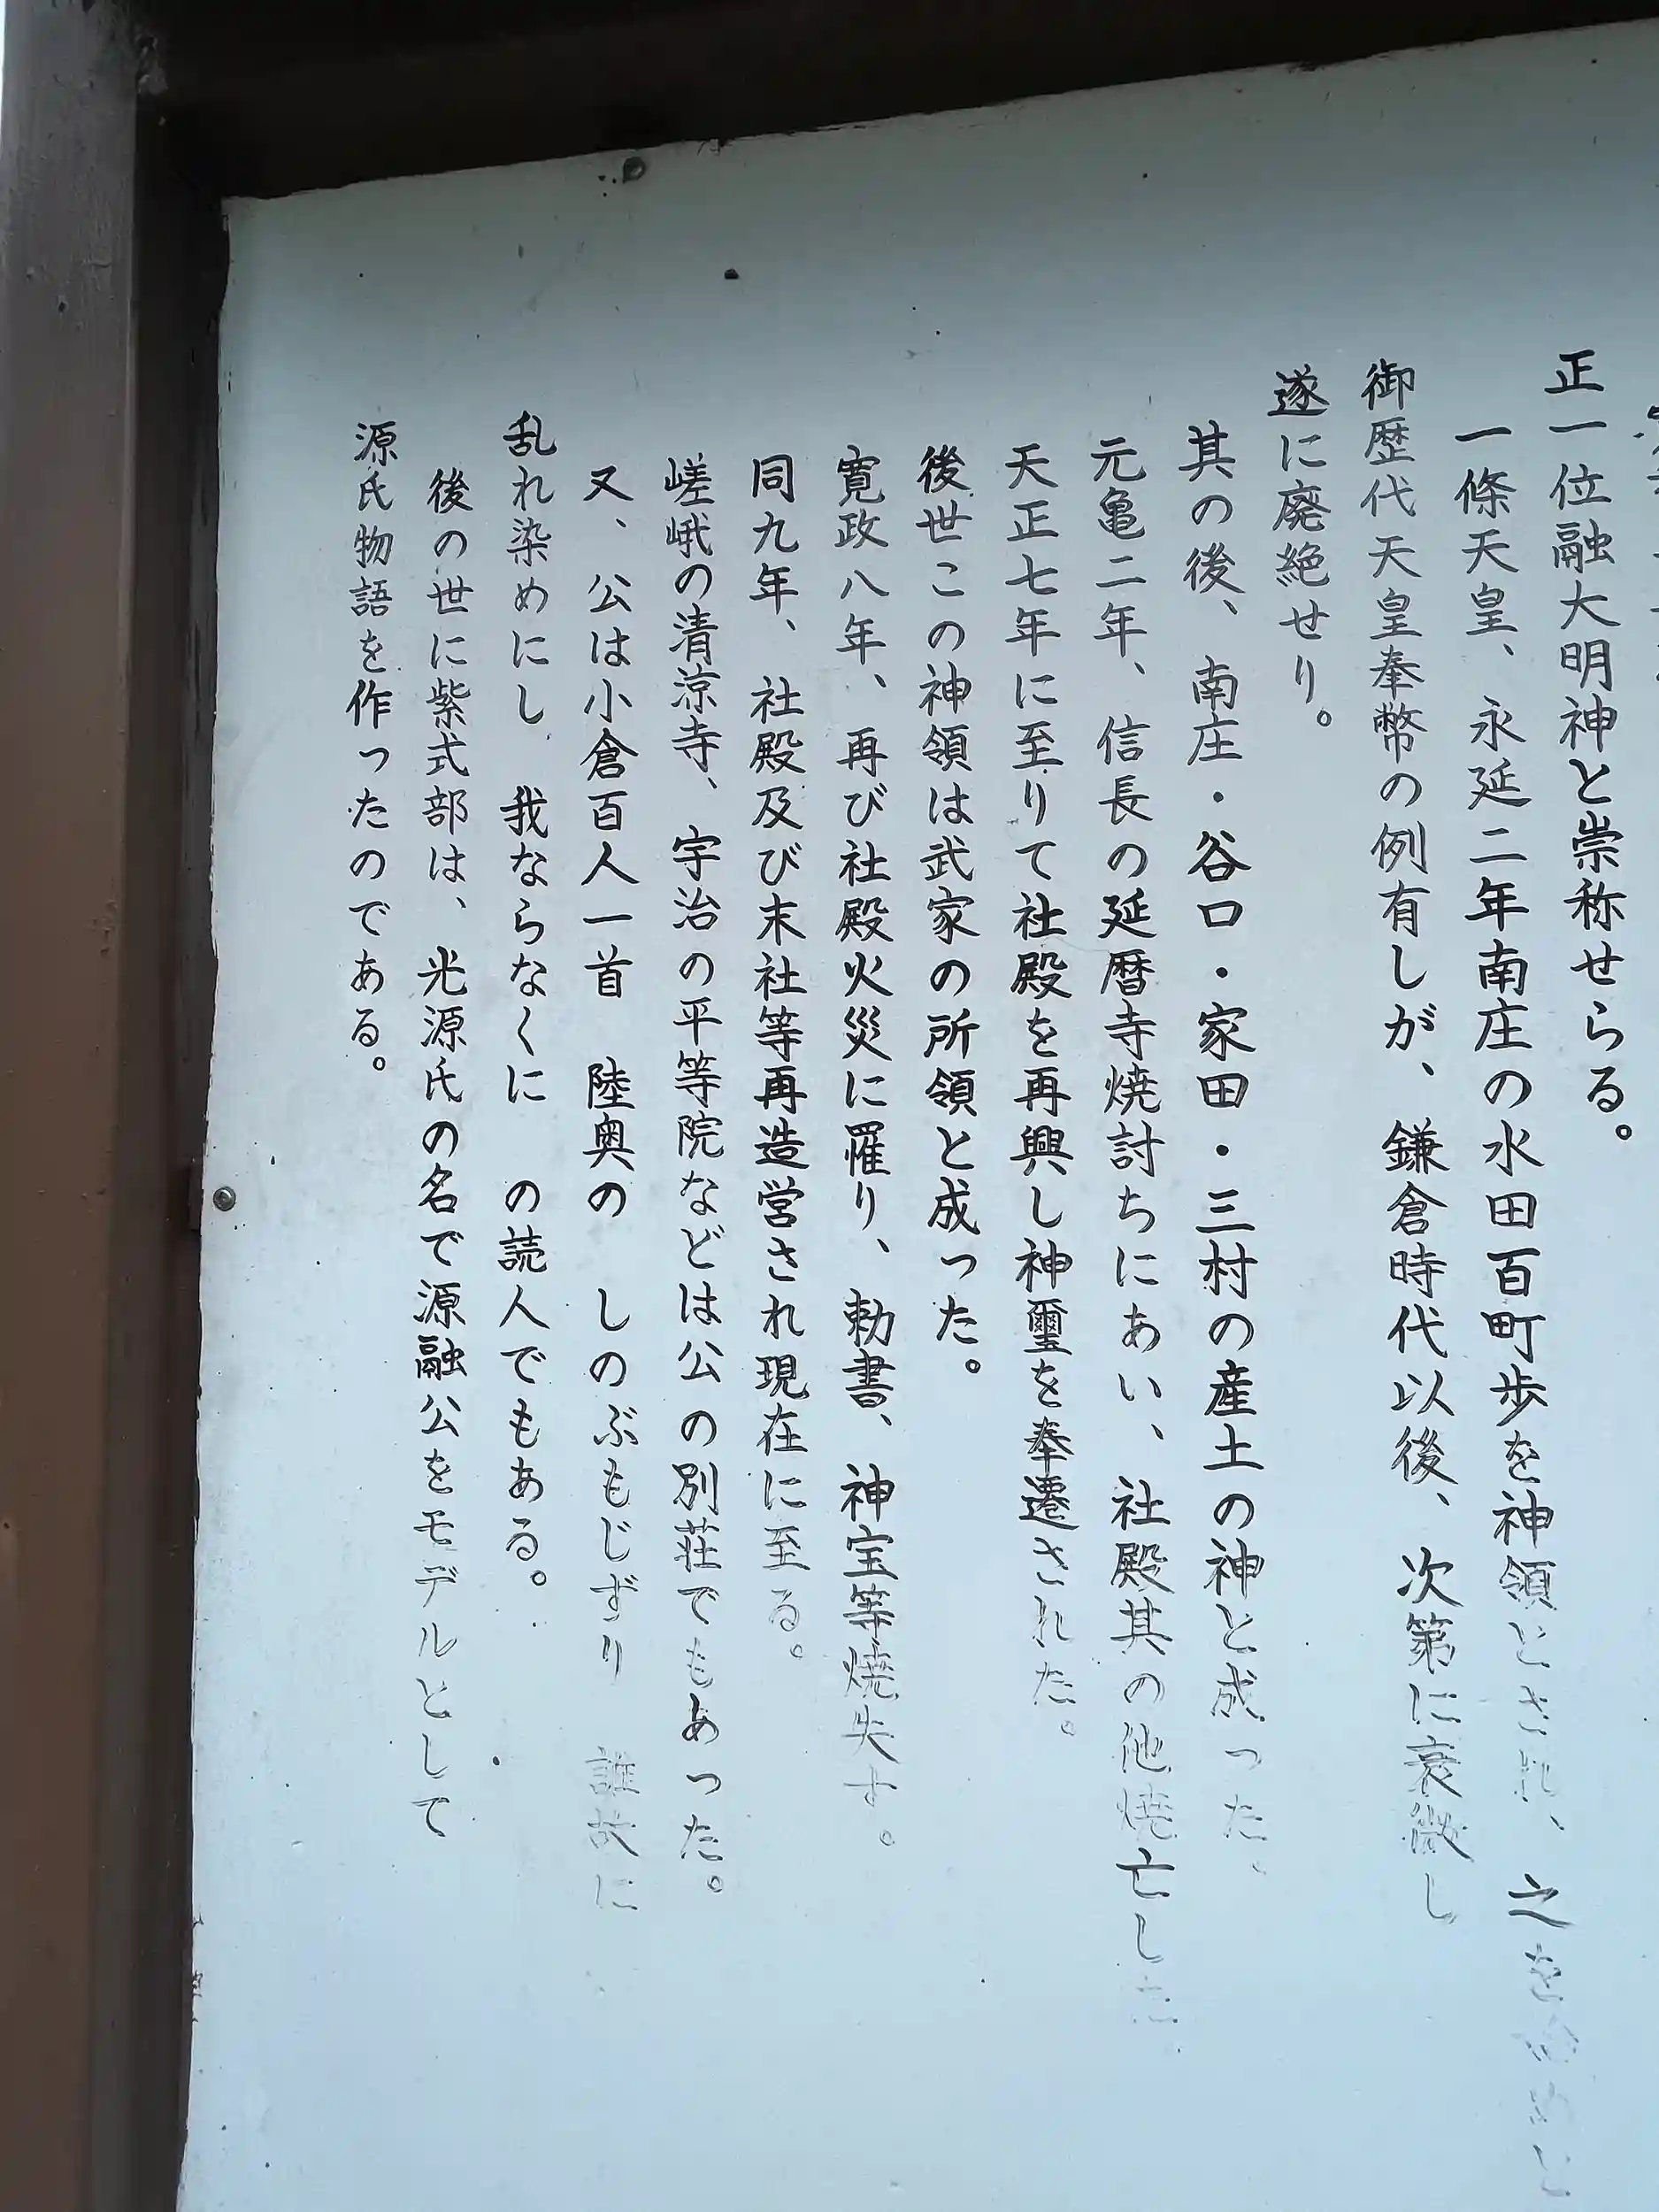 正一位融大明神と崇称せらる。
一條天皇、永延二年南庄の水田百町歩を神領とされ、之を
御歴代天皇奉幣の例有しが、鎌倉時代以後、次第に衰微し
遂に廃絶せり。
其の後、南庄・谷口・家田・三村の産土の神と成った。
元亀二年、信長の延暦寺焼討ちにあい、社殿其の他焼亡した
天正七年に至りて社殿を再興し神璽を奉遷された。
後世この神領は武家の所領と成った。
寛政八年、再び社殿火災に罹り、勅書、神宝等焼失す。
同九年、社殿及び末社等再造営され現在に至る。
嵯峨の清涼寺、宇治の平等院などは公の別荘でもあった。
又、公は小倉百人一首 陸奥の しのぶもじずり 誰故に
乱れ染めにし 我ならなくに の読人でもある。
後の世に紫式部は、光源氏の名で源融公をモデルとして
源氏物語を作ったのである。